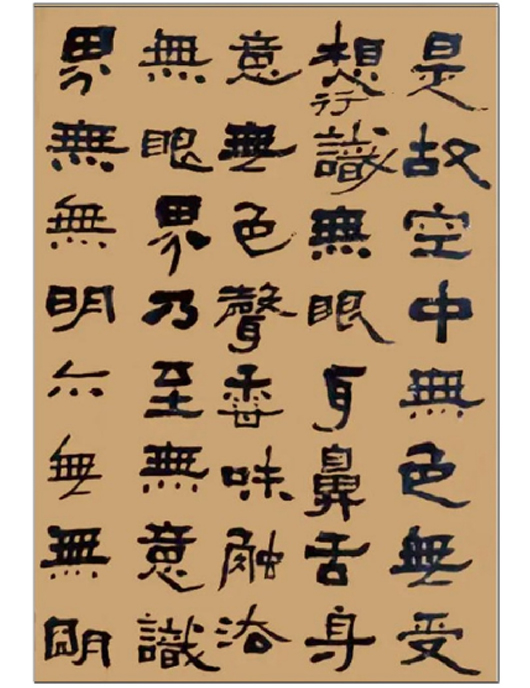 是故空中無色無受
想行識無眼耳鼻舌身
意無色聲香味触法
無眼界乃至無意識
界無無明亦無無朙